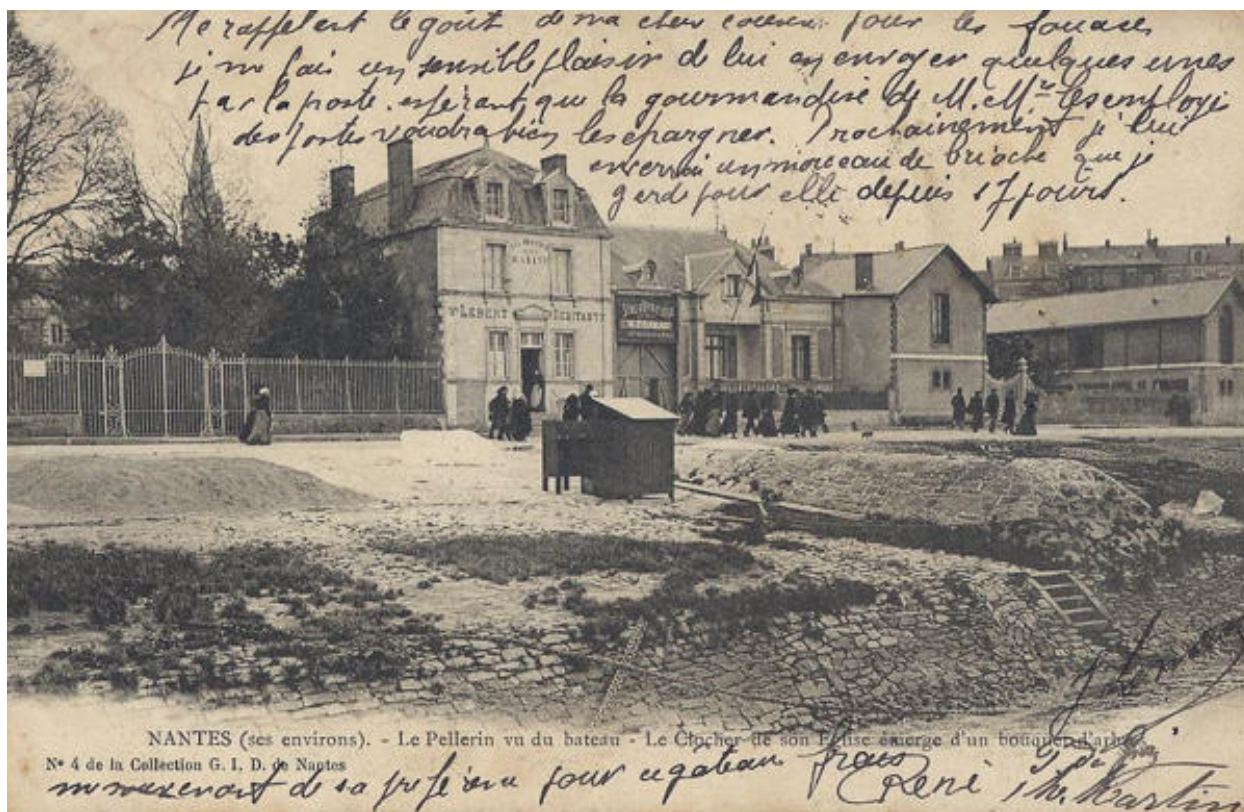 Me rappelant le goût de ma chère cousine pour les fouaces
je me fais un sensible plaisir de lui en envoyer quelques unes
par la poste, espérant que la gourmandise de M. Mrs les employés
des postes voudra bien les épargner. Prochainement je lui
enverrai un morceau de brioche que je
garde pour elle depuis 17 jours.
Vve LEBERT DÉBITANTE
NANTES (ses environs). - Le Pellerin vu du bateau - Le Clocher de son Eglise émerge d'un bouquet d'arbres
N° 4 de la Collection G. I. D. de Nantes
me souvenant de sa préférence pour ce gâteau frais
René
Martin